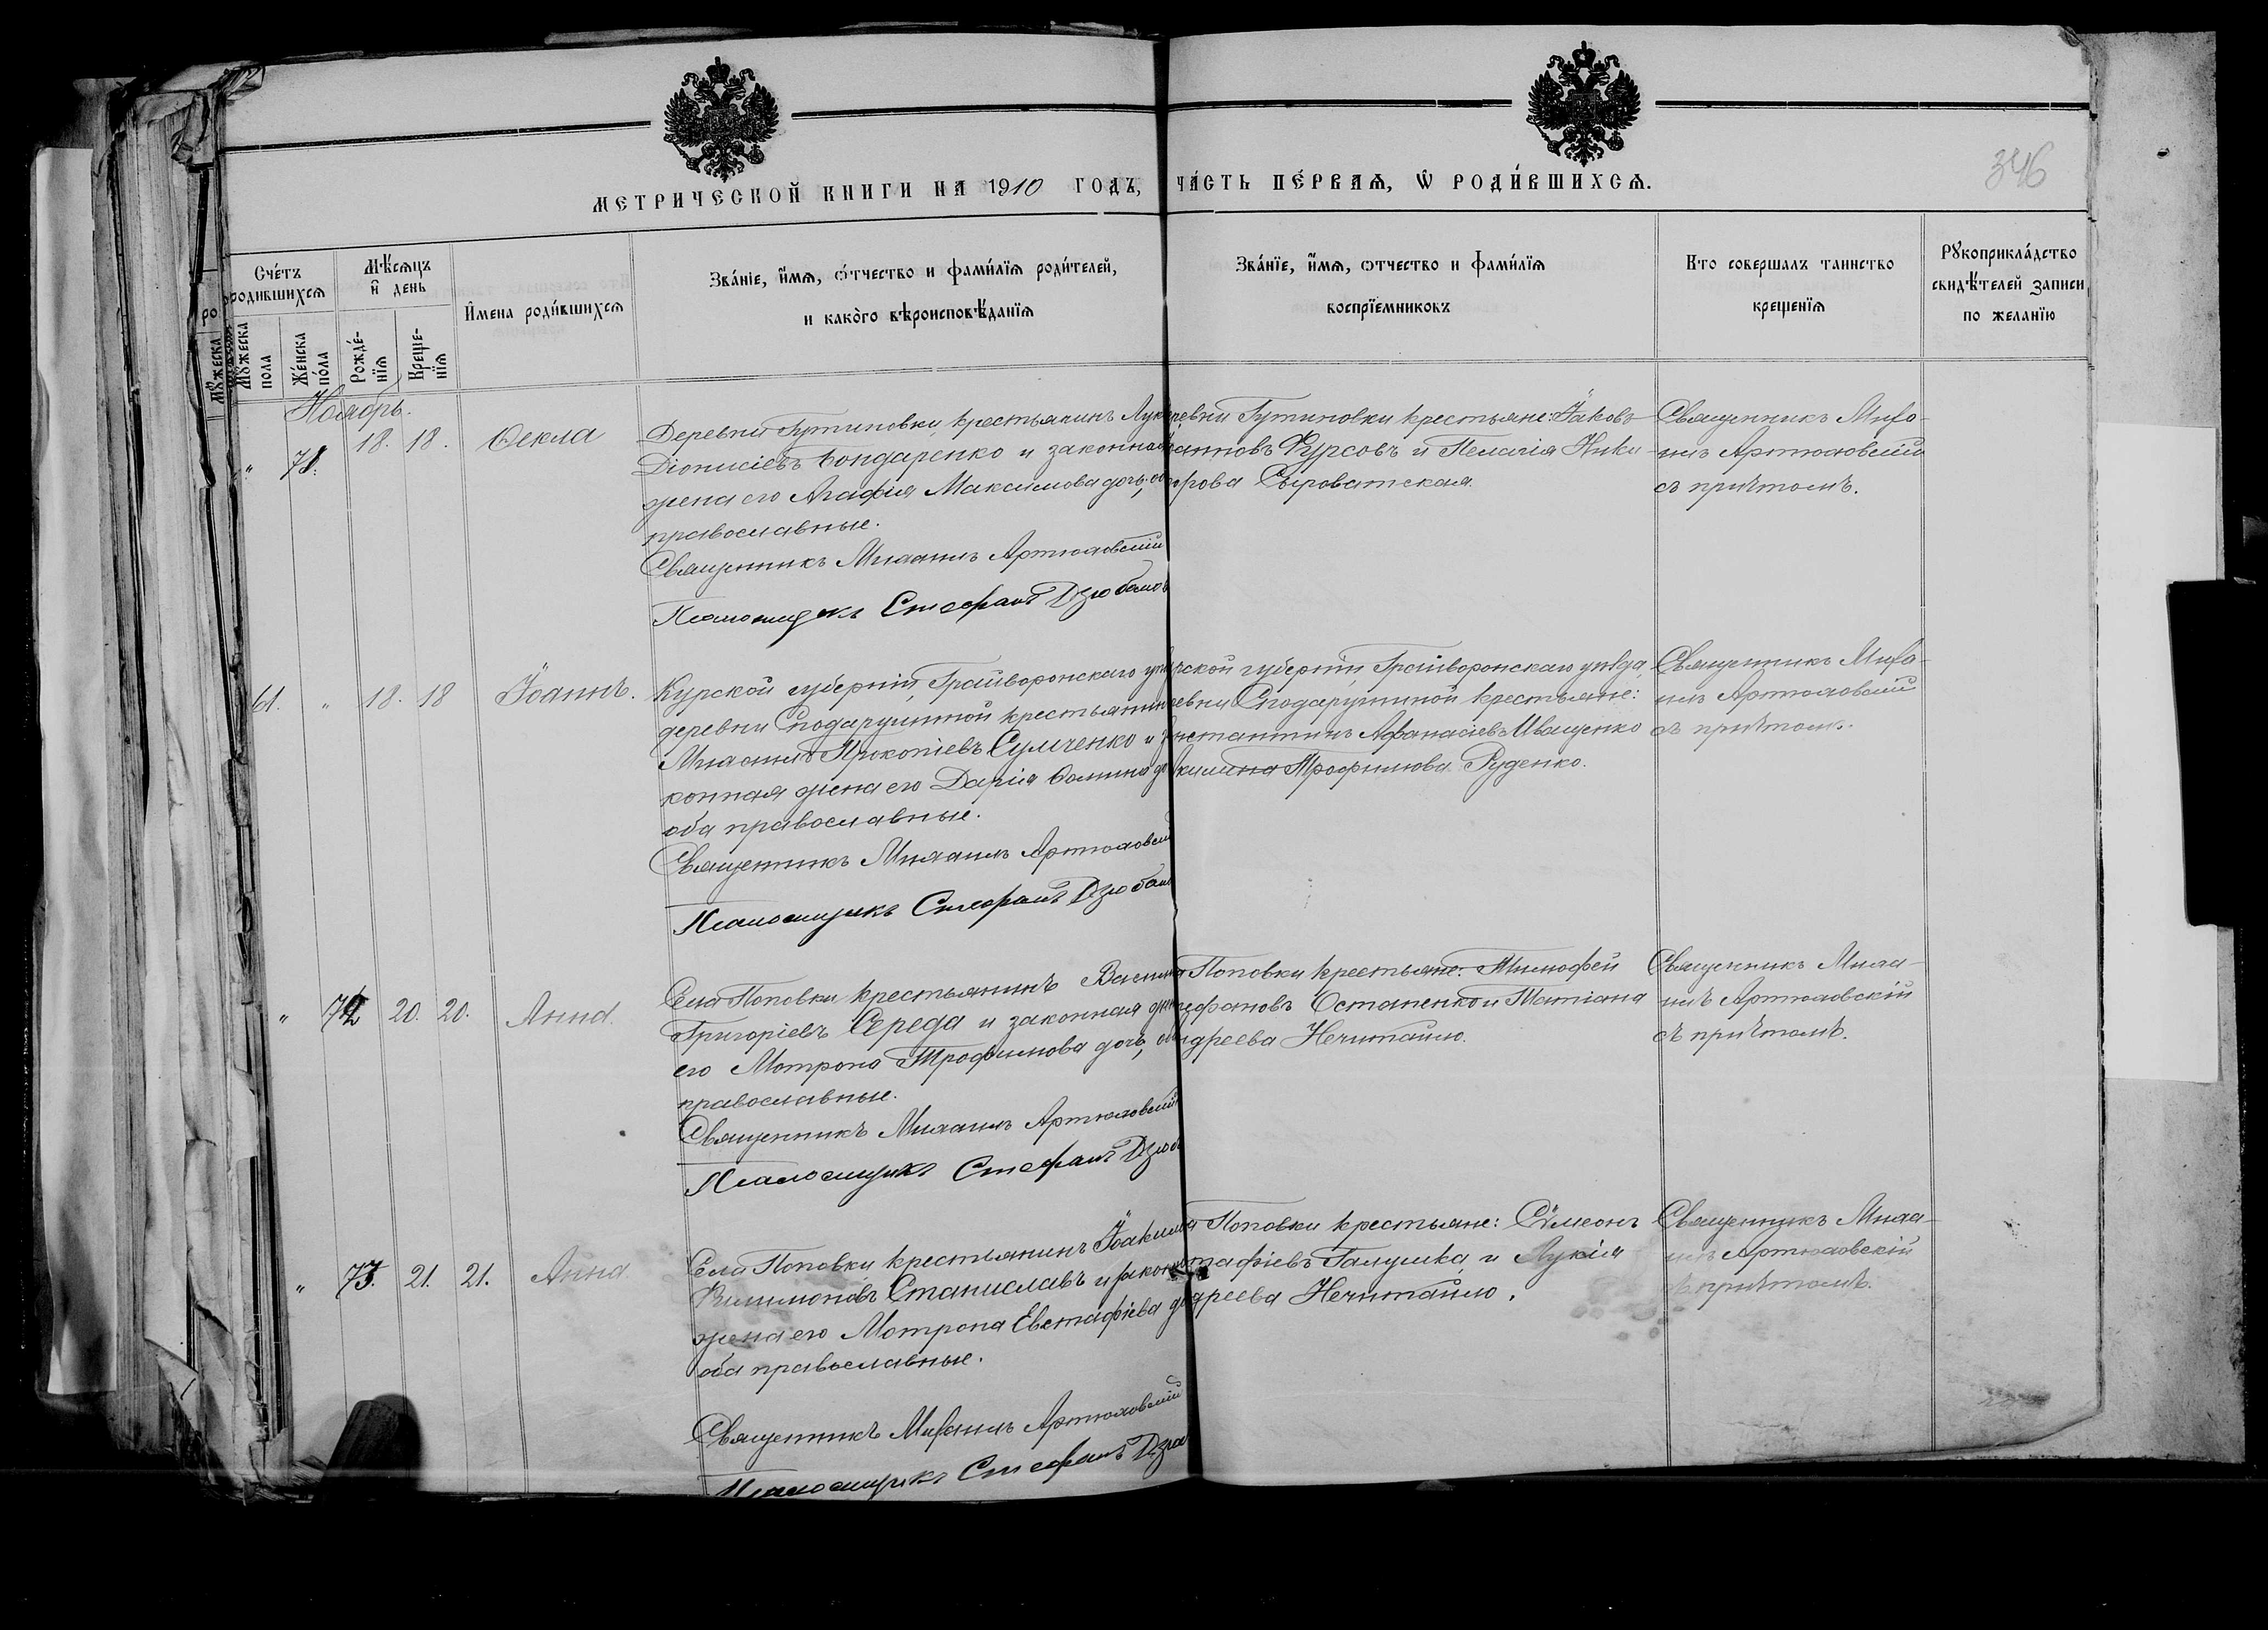 346
МЕТРИЧЕСКОЙ КНИГИ НА 1910 ГОДЪ, ЧА́СТЬ ПЕ́РВАѦ, Ѡ҆ РОДИ́ВШИХСѦ.
Сче́тъ родившихсѧ
Мѹ́жеска пола
Же́нска по́ла
Мѣ́сѧцъ и҆ день
Рожде́-нїѧ
Креще-нїѧ
И҆мена роди́вшихсѧ
Зва́нїе, и҆́мѧ, ѻ́тчество и фами́лїѧ роди́телей,
и како́гѡ вѣроисповѣ́данїѧ
Зва́нїе, и҆́мѧ, ѻтчество и фами́лїѧ
воспрїемниковъ
Кто совершалъ таинство
крещенїѧ
Рѹкоприкла́дство
свидѣ́телей записи
по желанїю
Ноябрь.
" 71. 18. 18. Ѳекла
Деревни Гутиновки, крестьянинъ Лук
Діонисіевъ Бондаренко и законная
жена его Агафія Максимова дочь, об
православные.
Священникъ Михаилъ Артюховскій
Псаломщикъ Стефанъ Дзюбано
ревни Гутиновки крестьяне: Іаковъ
анновъ Фурсовъ и Пелагія Ники-
форова Сыроватская.
Священникъ Миха-
илъ Артюховскій
съ причтомъ.
61. " 18. 18 Іоаннъ.
Курской губерніи, Грайворонскаго уѣ
деревни Сподарушиной крестьянин
Михаилъ Прокопіевъ Сумченко и за
конная жена его Дарія Ѳомина до
оба православные.
Священникъ Михаилъ Артюховскі
Псаломщикъ Стефанъ Дзюбан
рской губерніи Грайворонскаго уѣзда,
ревни Сподарушиной крестьяне:
нстантинъ Афанасіевъ Иващенко
килина Трофимова Руденко.
Священникъ Миха-
илъ Артюховскій
съ причтомъ.
" 72 20. 20. Анна.
Села Поповки крестьянинъ Васили
Григоріевъ Середа и законная жен
его Мотрона Трофимова дочь, об
православные.
Священникъ Михаилъ Артюховскій
Псаломщикъ Стефанъ Дзюб
Поповки крестьяне: Тимофей
тефановъ Остапенко и Татіана
ндреева Нечитайло.
Священникъ Миха-
илъ Артюховскій
съ причтомъ.
" 73. 21. 21. Анна
Села Поповки крестьянинъ Іоакимъ
Филимоновъ Станиславъ и закон
жена его Мотрона Евстафіева до
оба православные.
Священникъ Михаилъ Артюховскій
Псаломщикъ Стефанъ Дзюб
Поповки крестьяне: Сѵмеонъ
стафіевъ Галушка и Лукія
дреева Нечитайло.
Священникъ Миха-
илъ Артюховскій
съ причтомъ.